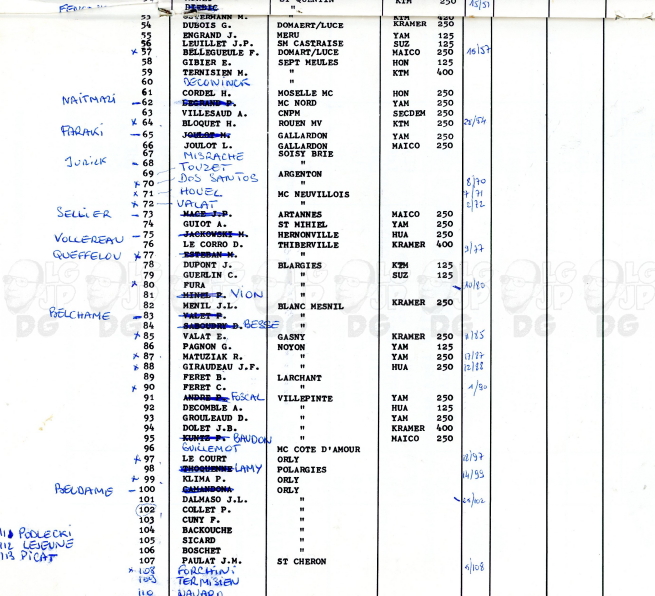 DIEBIC "
53 KTM 420
54 DUBOIS G. DOMAERT/LUCE KRAMER 250
55 ENGRAND J. MERU YAM 125
56 LEUILLET J.P. SM CASTRAISE SUZ 125
x 57 BELLEGUEULE F. DOMART/LUCE MAICO 250 15/57
58 GIBIER E. SEPT MEULES HON 125
59 TERNISIEN M. " KTM 400
60 DECONINCK "
61 CORDEL H. MOSELLE MC HON 250
NAITMAZI - 62 LEGRAND P. MC NORD YAM 250
63 VILLESAUD A. CNPM SECDEM 250
x 64 BLOQUET H. ROUEN MV KTM 250
FARAKI - 65 JOULOT M. GALLARDON YAM 250
66 JOULOT L. GALLARDON MAICO 250
67 MISRACHE SOISY BRIE
JURICK - 68 "
69 TOUZET ARGENTON
x 70 DOS SANTOS " 8/70
x 71 HOUEL MC NEUVILLOIS 7/71
x 72 VALAT " 2/72
SELLIER - 73 MACE J.P. ARTANNES MAICO 250
74 GUIOT A. ST MIHIEL YAM 250
VOLLEREAU - 75 JACKOWSKI M. HERNONVILLE HUA 250
76 LE CORRO D. THIBERVILLE KRAMER 400
QUEFFELOU x 77 ESTEBAN M. " 3/77
78 DUPONT J. BLARGIES KTM 125
79 GUERLIN C. " SUZ 125
x 80 FURA " 10/80
81 MINEL P. VION "
82 MENIL J.L. BLANC MESNIL KRAMER 250
BELCHAME - 83 VALET P. "
84 SABOUDRY D. BESSE "
x 85 VALAT E. GASNY KRAMER 250
86 PAGNON G. NOYON YAM 125
x 87 MATUZIAK R. " YAM 250 17/87
x 88 GIRAUDEAU J.F. " HUA 250 12/88
89 FERET B. LARCHANT
x 90 FERET C. " 1/90
91 ANDRE D. FOSCAL VILLEPINTE YAM 250
92 DECOMBLE A. " HUA 125
93 GROULEAUD D. " YAM 250
94 DOLET J.B. " KRAMER 400
95 KUNTZ P. BAUDON " MAICO 250
96 GUILLEMOT MC COTE D'AMOUR
x 97 LE COURT ORLY
98 THOQUENNE LAMY POLARGIES
x 99 KLIMA P. ORLY 14/99
BELDAME - 100 GAMANDONA ORLY
101 DALMASO J.L. "
102 COLLET P. "
103 CUNY F. "
104 BACKOUCHE "
105 SICARD "
106 BOSCHET "
107 PAULAT J.M. ST CHERON
111 PODLECKI
112 LEJEUNE
113 PICAT
x 108 FORCHINI
109 TERMISIEN
110 NAVARO
LGJP
DG